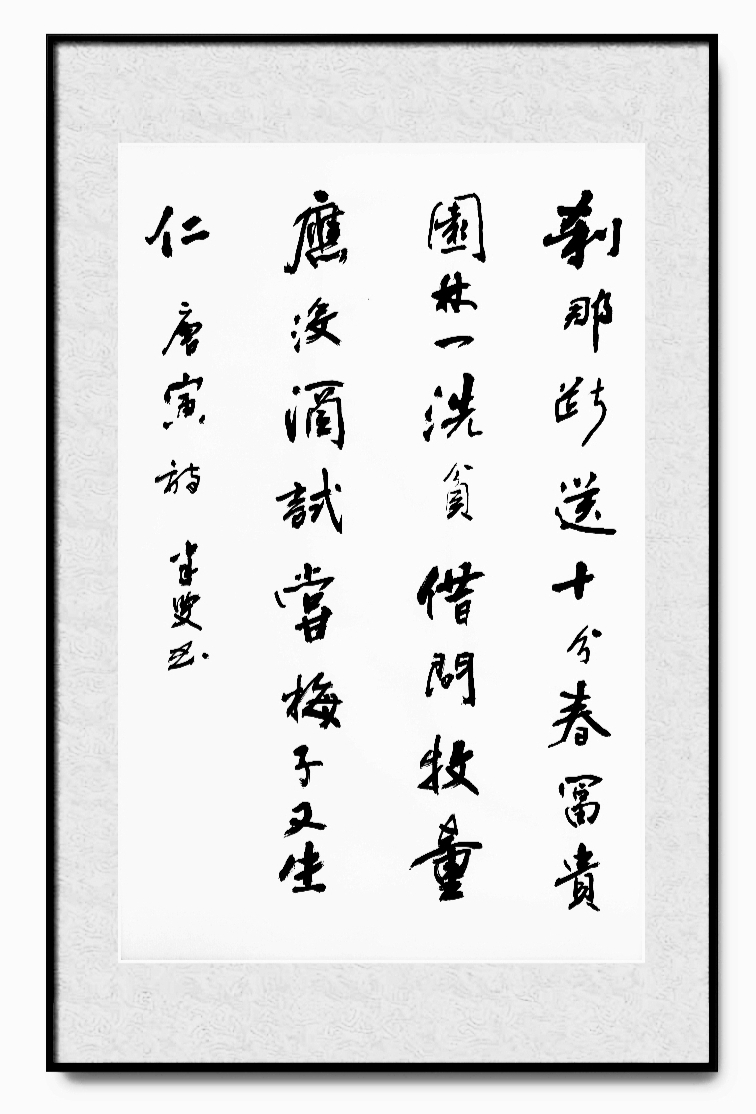 刹那断送十分春富貴
園林一洗貧借問牧童
應沒酒試嘗梅子又生
仁 唐寅詩 叟书